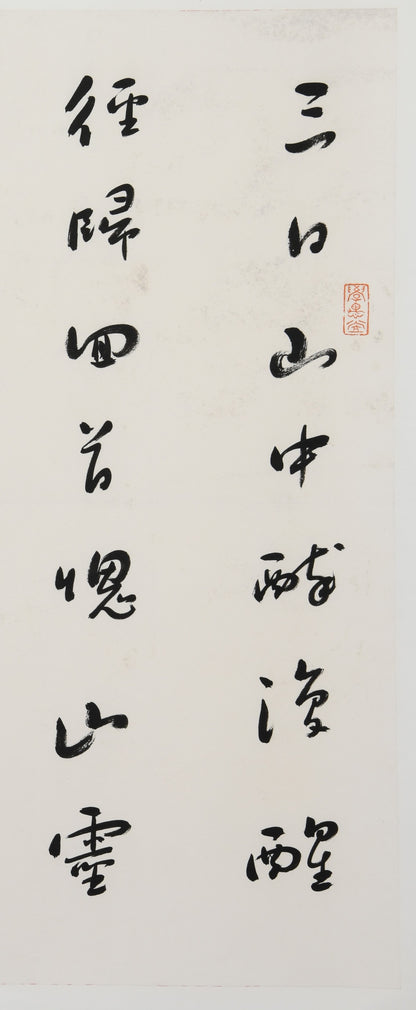 三日山中醉復醒
徑歸回首愧山靈